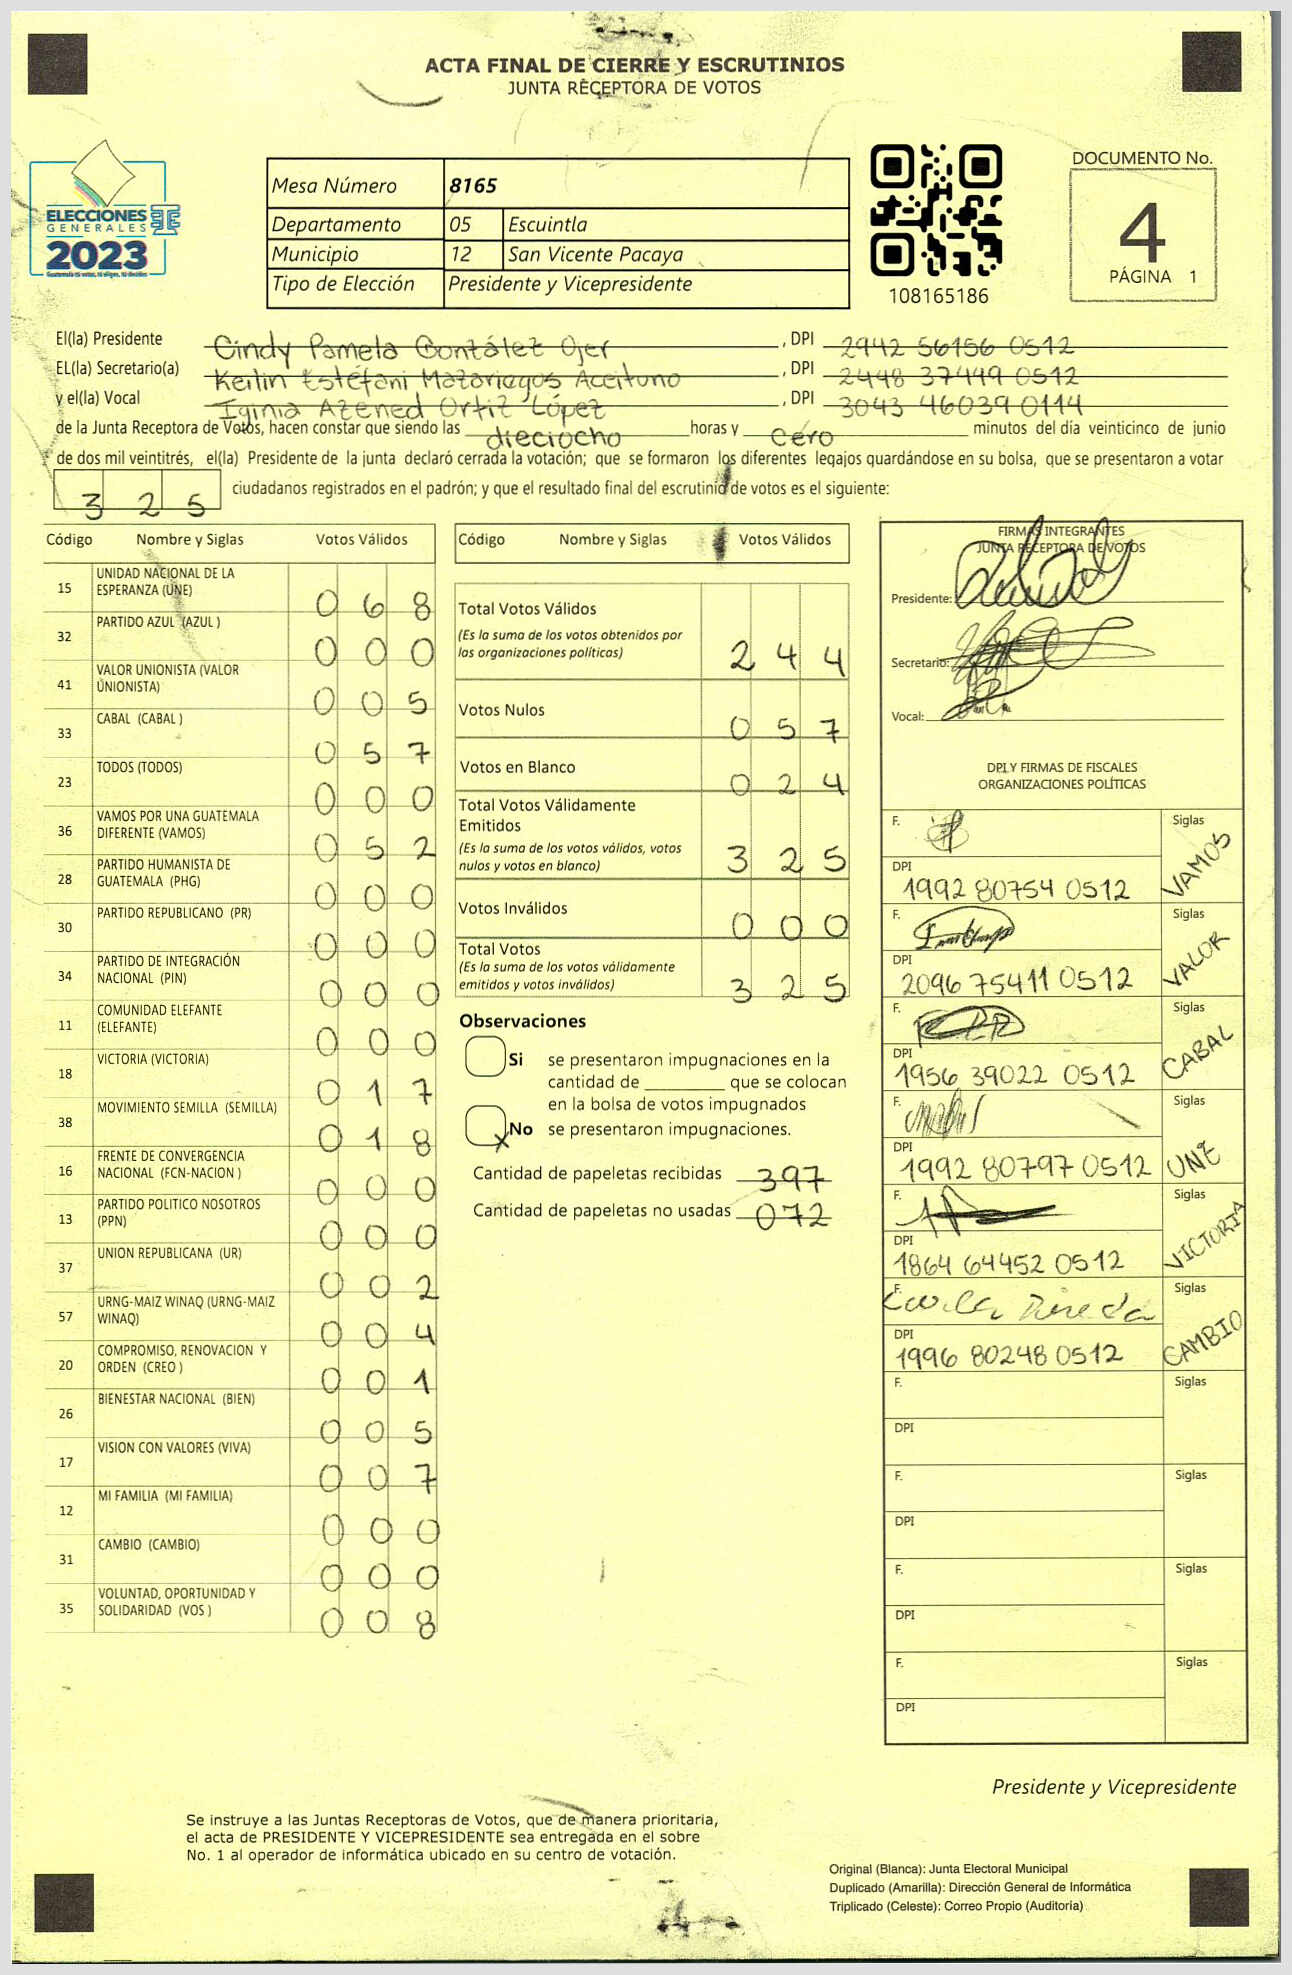 ACTA FINAL DE CIERRE Y ESCRUTINIOS
JUNTA RECEPTORA DE VOTOS
ELECCIONES
GENERALES
2023
Mesa Número 8165
Departamento 05 Escuintla
Municipio 12 San Vicente Pacaya
Tipo de Elección Presidente y Vicepresidente
108165186
DOCUMENTO No.
4
PÁGINA 1
El(la) Presidente Cindy Pamela González Ojer, DPI 2942 56156 0512
EL(la) Secretario(a) Keilin Estéfani Mazariegos Aceituno, DPI 2448 37449 0512
y el(la) Vocal Iginia Azened Ortiz López, DPI 3043 46039 0114
de la Junta Receptora de Votos, hacen constar que siendo las dieciocho horas y cero minutos del día veinticinco de junio
de dos mil veintitrés, el(la) Presidente de la junta declaró cerrada la votación; que se formaron los diferentes legajos guardándose en su bolsa, que se presentaron a votar
325 ciudadanos registrados en el padrón; y que el resultado final del escrutinio de votos es el siguiente:
Código Nombre y Siglas Votos Válidos
15 UNIDAD NACIONAL DE LA ESPERANZA (UNE) 068
32 PARTIDO AZUL (AZUL ) 000
41 VALOR UNIONISTA (VALOR UNIONISTA) 005
33 CABAL (CABAL ) 057
23 TODOS (TODOS) 000
36 VAMOS POR UNA GUATEMALA DIFERENTE (VAMOS) 052
28 PARTIDO HUMANISTA DE GUATEMALA (PHG) 000
30 PARTIDO REPUBLICANO (PR) 000
34 PARTIDO DE INTEGRACIÓN NACIONAL (PIN) 000
11 COMUNIDAD ELEFANTE (ELEFANTE) 000
18 VICTORIA (VICTORIA) 017
38 MOVIMIENTO SEMILLA (SEMILLA) 018
16 FRENTE DE CONVERGENCIA NACIONAL (FCN-NACION ) 000
13 PARTIDO POLITICO NOSOTROS (PPN) 000
37 UNION REPUBLICANA (UR) 002
57 URNG-MAIZ WINAQ (URNG-MAIZ WINAQ) 004
20 COMPROMISO, RENOVACION Y ORDEN (CREO ) 001
26 BIENESTAR NACIONAL (BIEN) 005
17 VISION CON VALORES (VIVA) 007
12 MI FAMILIA (MI FAMILIA) 000
31 CAMBIO (CAMBIO) 000
35 VOLUNTAD, OPORTUNIDAD Y SOLIDARIDAD (VOS ) 008
Código Nombre y Siglas Votos Válidos
Total Votos Válidos
(Es la suma de los votos obtenidos por
las organizaciones políticas) 244
Votos Nulos 057
Votos en Blanco 024
Total Votos Válidamente
Emitidos
(Es la suma de los votos válidos, votos
nulos y votos en blanco) 325
Votos Inválidos 000
Total Votos
(Es la suma de los votos válidamente
emitidos y votos inválidos) 325
Observaciones
Si se presentaron impugnaciones en la
cantidad de ________ que se colocan
en la bolsa de votos impugnados
X No se presentaron impugnaciones.
Cantidad de papeletas recibidas 397
Cantidad de papeletas no usadas 072
FIRMAS INTEGRANTES
JUNTA RECEPTORA DE VOTOS
Presidente:
Secretario:
Vocal:
DPI Y FIRMAS DE FISCALES
ORGANIZACIONES POLÍTICAS
F. Siglas VAMOS
DPI 1992 80754 0512
F. Siglas VALOR
DPI 2096 75411 0512
F. Siglas CABAL
DPI 1956 39022 0512
F. Siglas UNE
DPI 1992 80797 0512
F. Siglas VICTORIA
DPI 1864 64452 0512
F. Siglas CAMBIO
DPI 1996 80248 0512
F. Siglas
DPI
F. Siglas
DPI
F. Siglas
DPI
F. Siglas
DPI
Presidente y Vicepresidente
Se instruye a las Juntas Receptoras de Votos, que de manera prioritaria,
el acta de PRESIDENTE Y VICEPRESIDENTE sea entregada en el sobre
No. 1 al operador de informática ubicado en su centro de votación.
Original (Blanca): Junta Electoral Municipal
Duplicado (Amarilla): Dirección General de Informática
Triplicado (Celeste): Correo Propio (Auditoría)